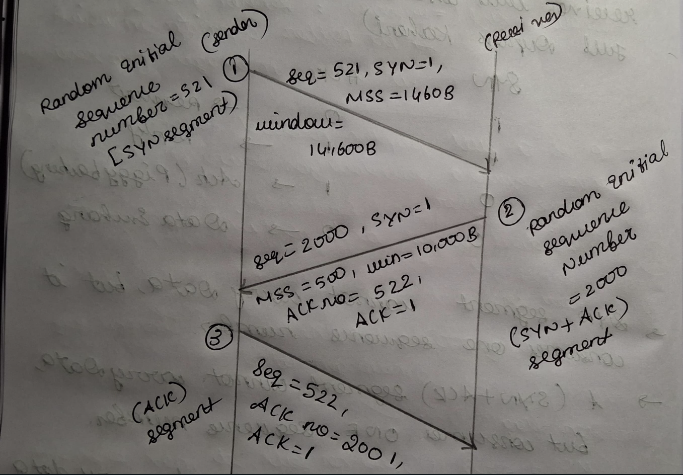 (Sender)
(Receiver)
Random Initial
sequence
number = 521
[SYN segment)
1
Seq = 521, SYN=1,
MSS = 1460B
window =
14,600B
2
Random Initial
sequence
Number
= 2000
(SYN + ACK)
segment
Seq = 2000, SYN=1
MSS = 500, win = 10,000B
ACK no = 522,
ACK = 1
3
(ACK)
segment
Seq = 522,
ACK no = 2001,
ACK = 1
ACK (Piggybacking)